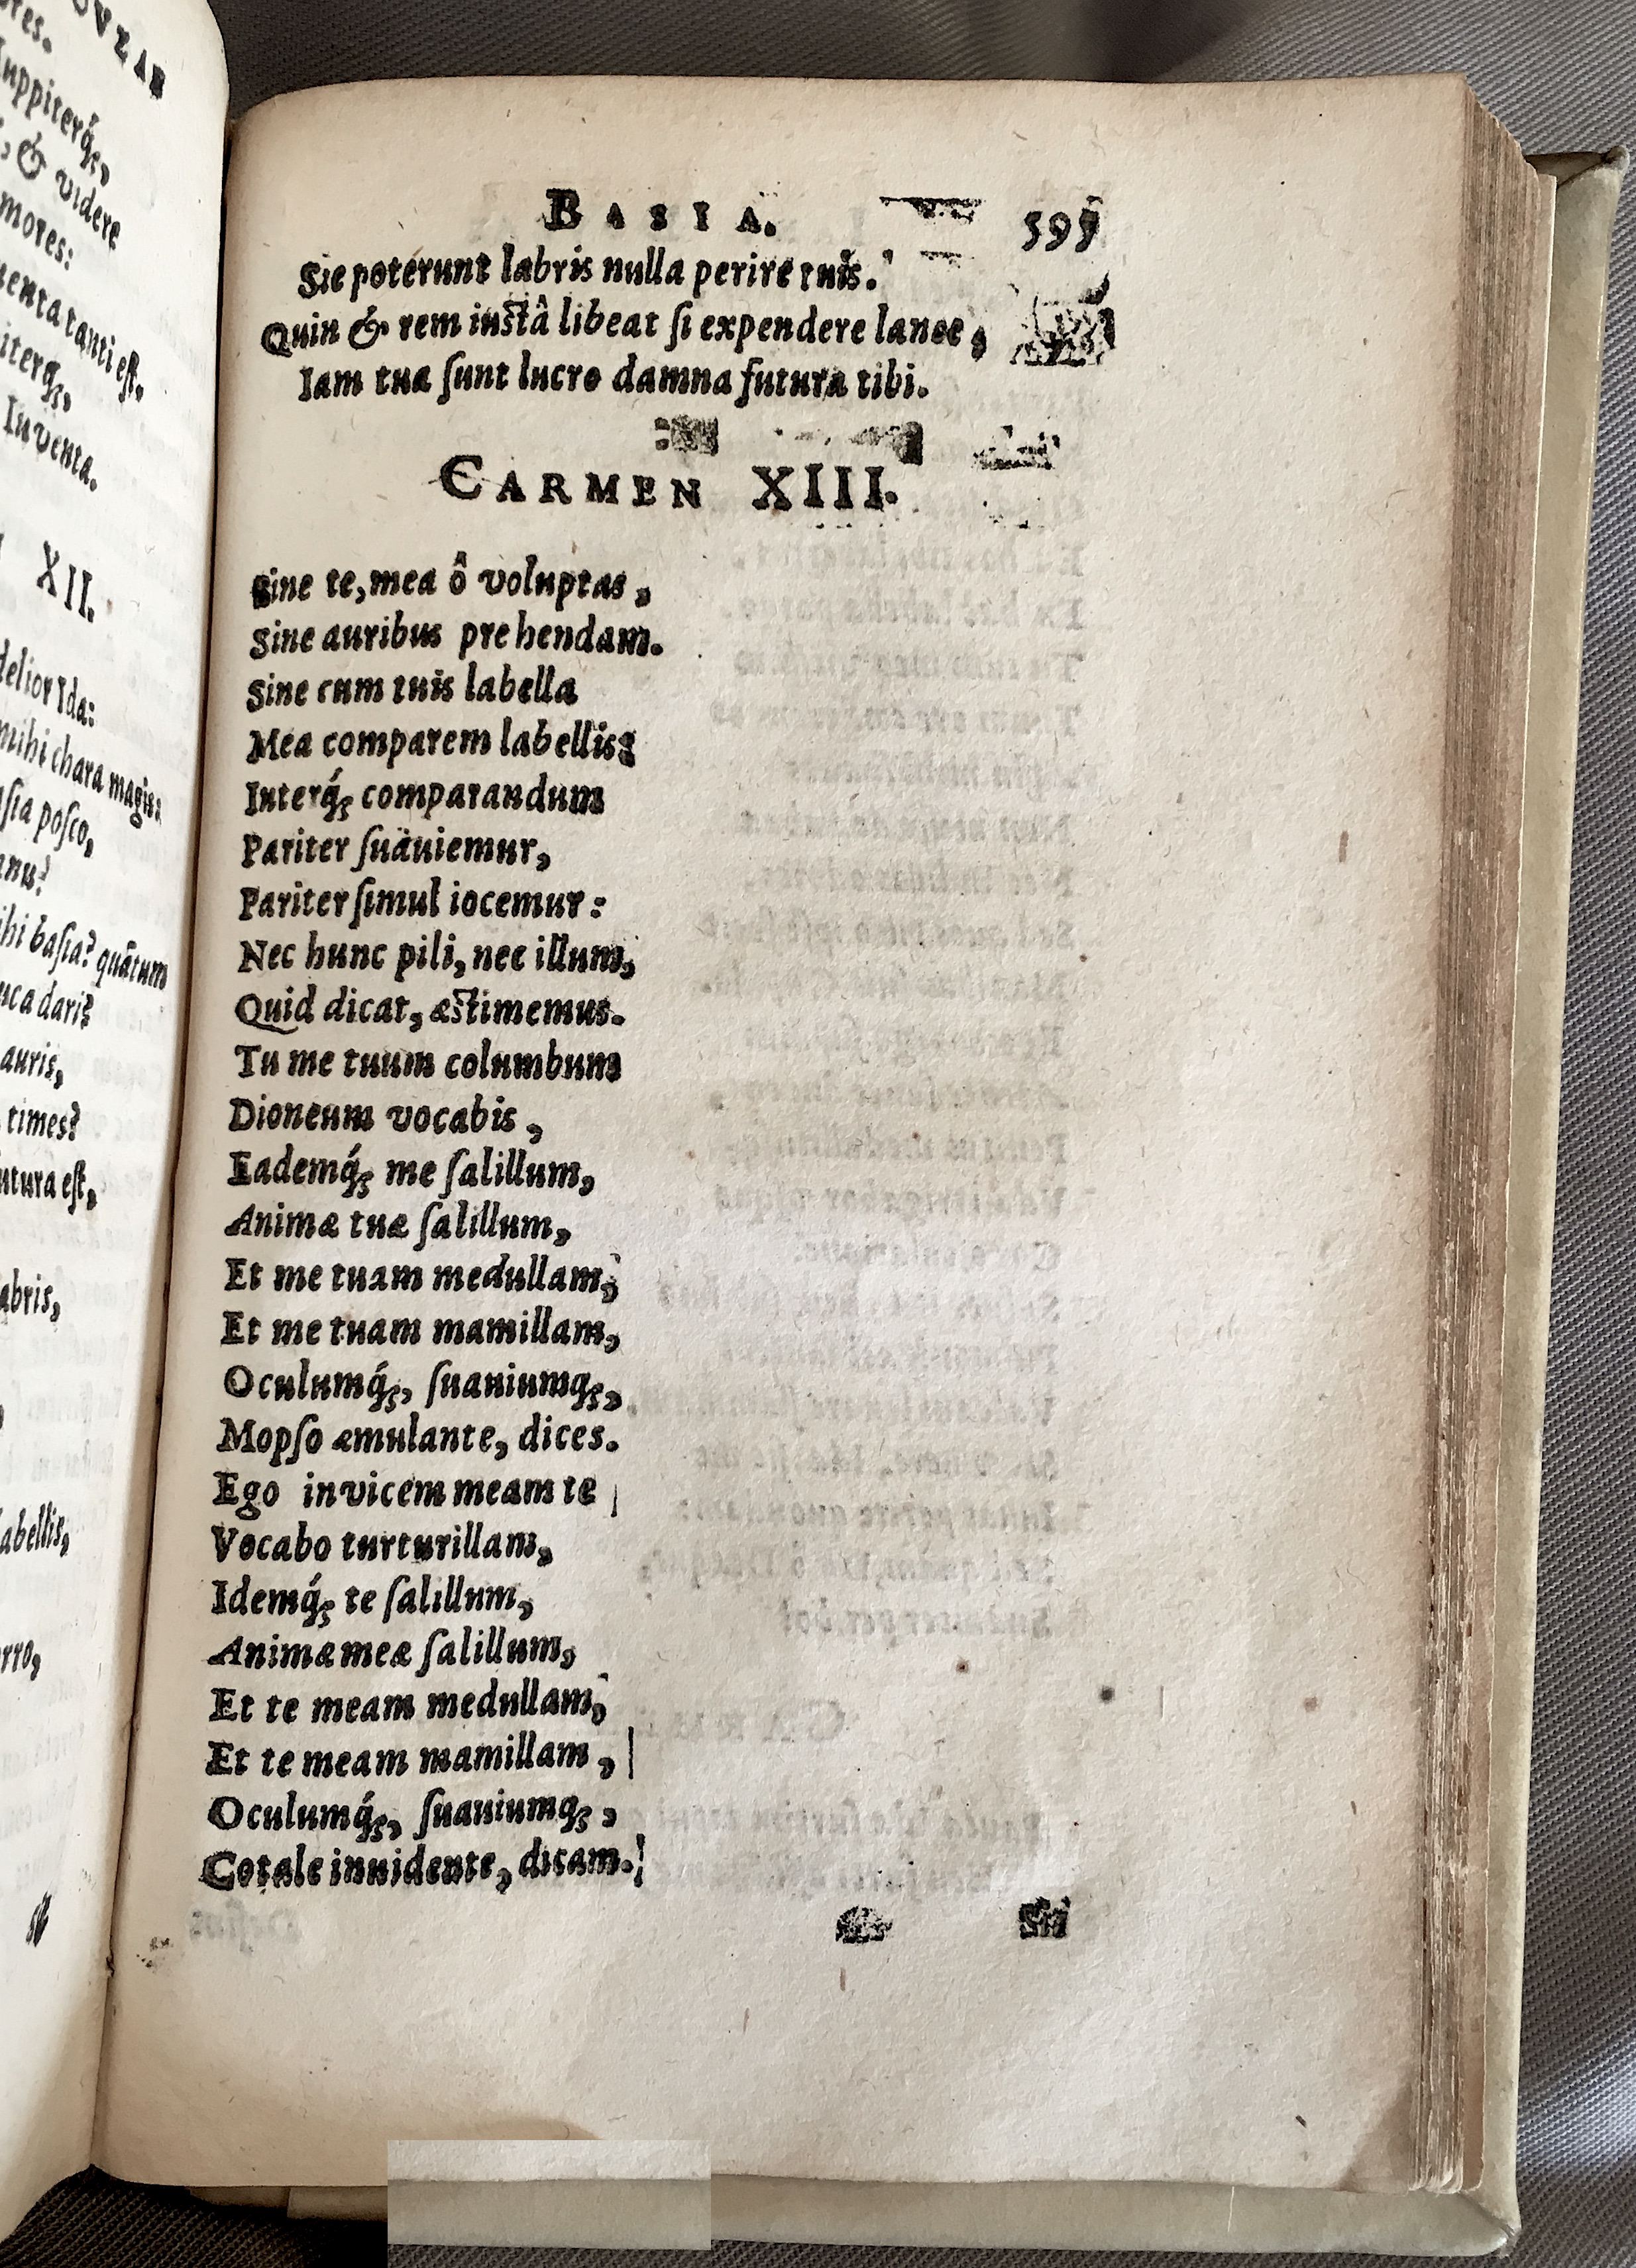 OVZAR
ores.
Iuppiterq́ꝫ,
, & videre
mores:
menta tanti est,
iterq́ꝫ,
Iuventa.
XII.
delior Ida:
mihi chara magis:
asia posco,
anu?
ihi basia? quātum
uca dari?
auris,
times?
utura est,
abris,
abellis,
orro,
BASIA. 599
Sic poterunt labris nulla perire tuis.
Quin & rem iustâ libeat ſi expendere lance,
Iam tua ſunt lucro damna futura tibi.
CARMEN XIII.
Sine te, mea ô voluptas,
Sine auribus prehendam.
Sine cum tuis labella
Mea comparem labellis:
Interq́ꝫ comparandum
Pariter ſuauiemur,
Pariter ſimul iocemur:
Nec hunc pili, nec illum,
Quid dicat, æstimemus.
Tu me tuum columbum
Dioneum vocabis,
Eademq́ꝫ me ſalillum,
Animæ tuæ ſalillum,
Et me tuam medullam,
Et me tuam mamillam,
Oculumq́ꝫ, ſuauiumqꝫ,
Mopſo æmulante, dices.
Ego invicem meam te
Vocabo turturillam,
Idemq́ꝫ te ſalillum,
Animæ meæ ſalillum,
Et te meam medullam,
Et te meam mamillam,
Oculumq́ꝫ, ſuauiumqꝫ,
Cotale inuidente, dicam.